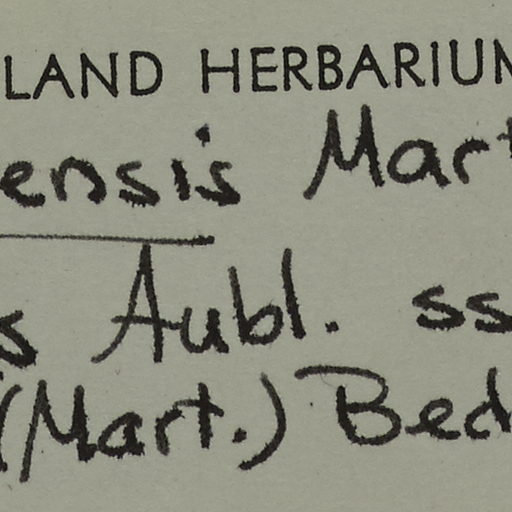 LAND HERBARIUM
ensis Mart
s Aubl. ss
(Mart.) Bed